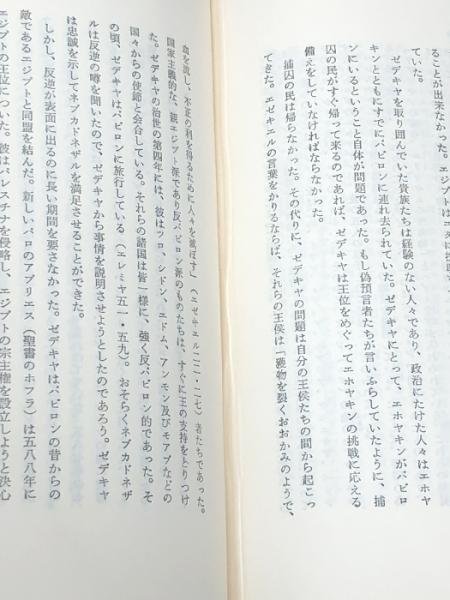 ることが出来なかった。エジプトはユダに
ていた。
ゼデキヤを取り囲んでいた貴族たちは経験のない人々であり、政治にたけた人々はエホヤ
キンとともにすでにバビロンに連れ去られていた。ゼデキヤにとって、エホヤキンがバビロ
ンにいるということ自体が問題であった。もし偽預言者たちが言いふらしていたように、捕
囚の民がすぐ帰って来るのであれば、ゼデキヤは王位をめぐってエホヤキンの挑戦に応える
備えをしていなければならなかった。
捕囚の民は帰らなかった。その代りに、ゼデキヤの問題は自分の王侯たちの間から起こっ
てきた。エゼキエルの言葉をかりるならば、それらの王侯は「獲物を裂くおおかみのようで、
血を流し、不正の利を得るために人々を滅ぼす」(エゼキエル二二・二七)者たちであった。
国家主義的な、親エジプト派であり反バビロン派のものたちは、すぐに王の支持をとりつけ
た。ゼデキヤの治世の第四年には、彼はツロ、シドン、エドム、アンモン及びモアブなどの
国々からの使節と会合している。それらの諸国は皆一様に、強く反バビロン的であった。そ
の頃、ゼデキヤはバビロンに旅行している(エレミヤ五一・五九)。おそらくネブカドネザ
ルは反逆の噂を聞いたので、ゼデキヤから事情を説明させようとしたのであろう。ゼデキヤ
は忠誠を示してネブカドネザルを満足させることができた。
しかし、反逆が表面に出るのに長い期間を要さなかった。ゼデキヤはバビロンの昔からの
敵であるエジプトと同盟を結んだ。新しいパロのアプリエス(聖書のホフラ)は五八八年に
エジプトの王位についた。彼はパレスチナを侵略し、エジプトの宗主権を設立しようと決心